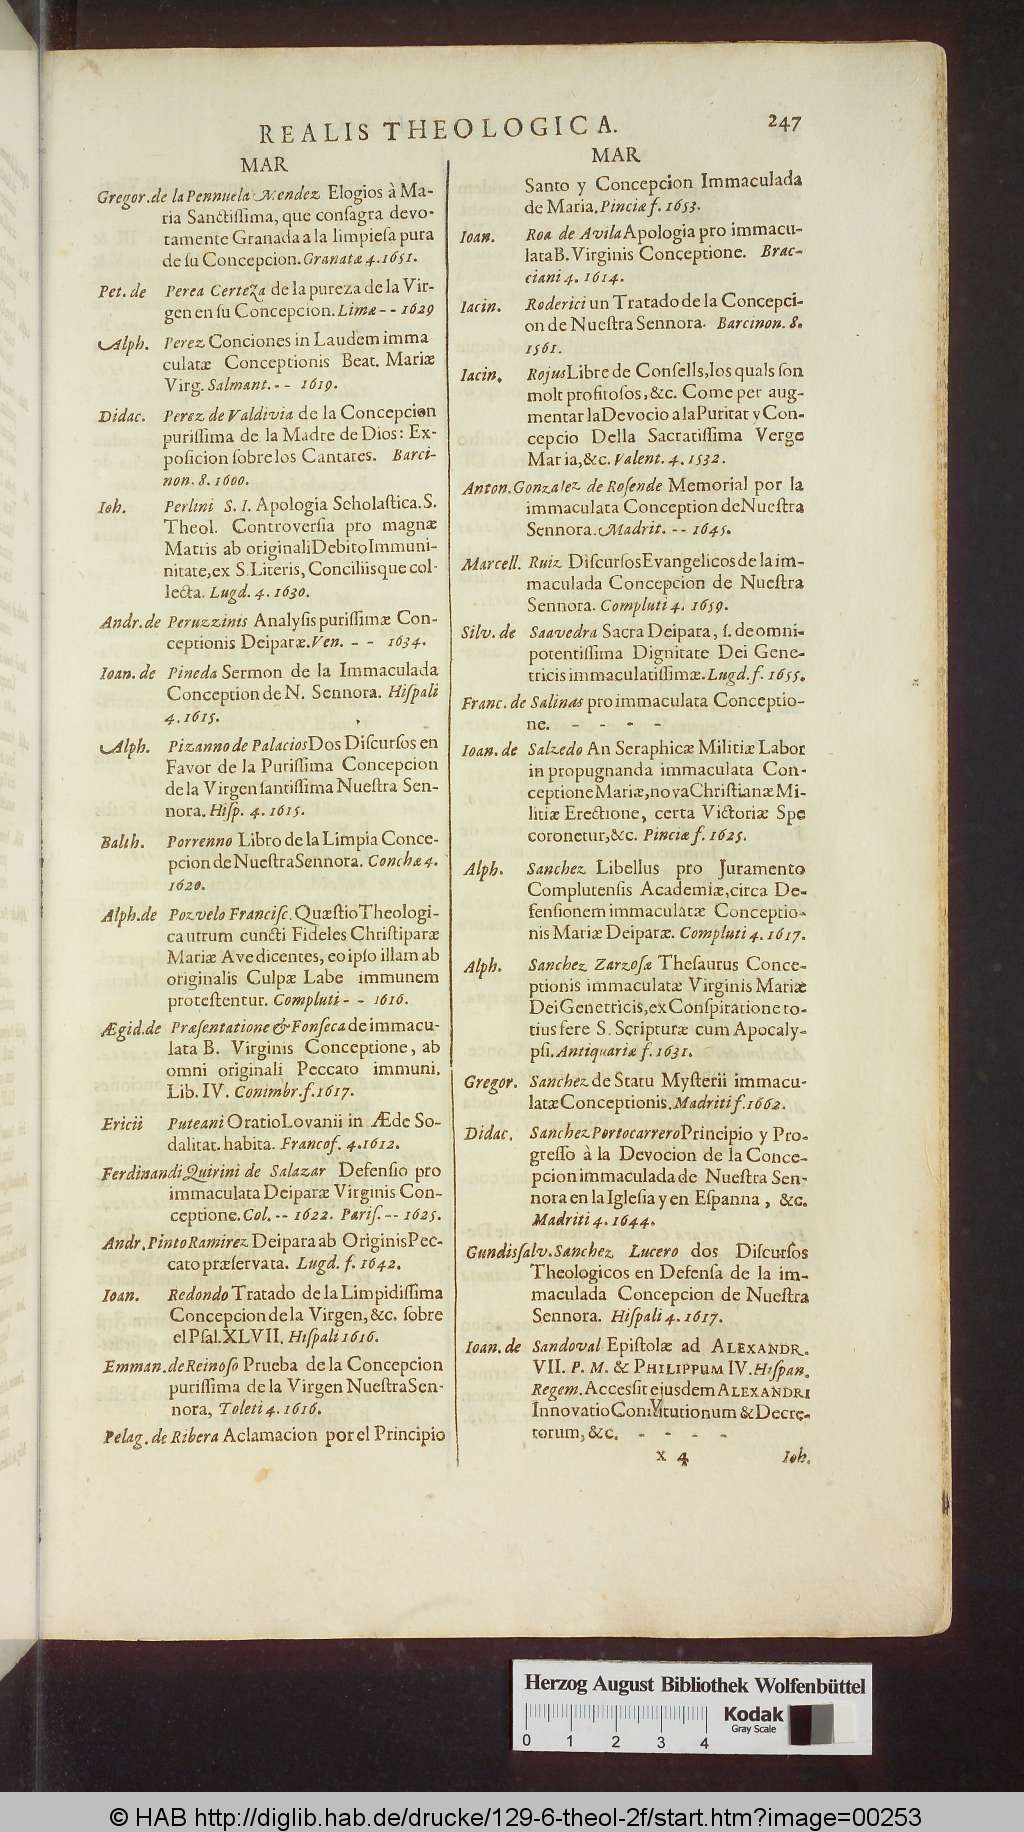 REALIS THEOLOGICA.
247
MAR
Gregor. de la Pennuela Mendez Elogios à Ma-
ria Sanctiſſima, que conſagra devo-
tamente Granada a la limpieſa pura
de ſu Concepcion. Granatæ 4. 1651.
Pet. de Perea Certeza de la pureza de la Vir-
gen en ſu Concepcion. Limæ -- 1629
Alph. Perez Conciones in Laudem imma
culatæ Conceptionis Beat. Mariæ
Virg. Salmant. -- 1619.
Didac. Perez de Valdivia de la Concepcion
puriſſima de la Madre de Dios: Ex-
poſicion ſobre los Cantares. Barci-
non. 8. 1600.
Ioh. Perlini S. I. Apologia Scholaſtica. S.
Theol. Controverſia pro magnæ
Matris ab originali Debito Immuni-
nitate, ex S. Literis, Conciliisque col-
lecta. Lugd. 4. 1630.
Andr. de Peruzzinis Analyſis puriſſimæ Con-
ceptionis Deiparæ. Ven. -- 1634.
Ioan. de Pineda Sermon de la Immaculada
Conception de N. Sennora. Hiſpali
4. 1615.
Alph. Pizanno de Palacios Dos Diſcurſos en
Favor de la Puriſſima Concepcion
de la Virgen ſantiſſima Nueſtra Sen-
nora. Hiſp. 4. 1615.
Balth. Porrenno Libro de la Limpia Conce-
pcion de Nueſtra Sennora. Conchæ 4.
1620.
Alph. de Pozvelo Franciſc. Quæſtio Theologi-
ca utrum cuncti Fideles Chriſtiparæ
Mariæ Ave dicentes, eo ipſo illam ab
originalis Culpæ Labe immunem
proteſtentur. Compluti -- 1616.
Ægid. de Præſentatione & Fonſeca de immacu-
lata B. Virginis Conceptione, ab
omni originali Peccato immuni.
Lib. IV. Conimbr. f. 1617.
Ericii Puteani Oratio Lovanii in Æde So-
dalitat. habita. Francof. 4. 1612.
Ferdinandi Quirini de Salazar Defenſio pro
immaculata Deiparæ Virginis Con-
ceptione. Col. -- 1622. Pariſ. -- 1625.
Andr. Pinto Ramirez Deipara ab Originis Pec-
cato præſervata. Lugd. f. 1642.
Ioan. Redondo Tratado de la Limpidiſſima
Concepcion de la Virgen, &c. ſobre
el Pſal. XLVII. Hiſpali 1616.
Emman. de Reinoſo Prueba de la Concepcion
puriſſima de la Virgen Nueſtra Sen-
nora, Toleti 4. 1616.
Pelag. de Ribera Aclamacion por el Principio
MAR
Santo y Concepcion Immaculada
de Maria. Pinciæ f. 1653.
Ioan. Roa de Avila Apologia pro immacu-
lata B. Virginis Conceptione. Brac-
ciani 4. 1614.
Iacin. Roderici un Tratado de la Concepci-
on de Nueſtra Sennora. Barcinon. 8.
1561.
Iacin. Rojus Libre de Conſells, los quals ſon
molt profitoſos, &c. Come per aug-
mentar la Devocio a la Puritat y Con-
cepcio Della Sacratiſſima Verge
Maria, &c. Valent. 4. 1532.
Anton. Gonzalez de Roſende Memorial por la
immaculata Conception de Nueſtra
Sennora. Madrit. -- 1645.
Marcell. Ruiz Diſcurſos Evangelicos de la im-
maculada Concepcion de Nueſtra
Sennora. Compluti 4. 1659.
Silv. de Saavedra Sacra Deipara, ſ. de omni-
potentiſſima Dignitate Dei Gene-
tricis immaculatiſſimæ. Lugd. f. 1655.
Franc. de Salinas pro immaculata Conceptio-
ne. - - - -
Ioan. de Salzedo An Seraphicæ Militiæ Labor
in propugnanda immaculata Con-
ceptione Mariæ, nova Chriſtianæ Mi-
litiæ Erectione, certa Victoriæ Spe
coronetur, &c. Pinciæ f. 1625.
Alph. Sanchez Libellus pro Juramento
Complutenſis Academiæ, circa De-
fenſionem immaculatæ Conceptio-
nis Mariæ Deiparæ. Compluti 4. 1617.
Alph. Sanchez Zarzoſa Theſaurus Conce-
ptionis immaculatæ Virginis Mariæ
Dei Genetricis, ex Conſpiratione to-
tius fere S. Scripturæ cum Apocaly-
pſi. Antiquariæ f. 1631.
Gregor. Sanchez de Statu Myſterii immacu-
latæ Conceptionis. Madriti f. 1662.
Didac. Sanchez Portocarrero Principio y Pro-
greſſo à la Devocion de la Conce-
pcion immaculada de Nueſtra Sen-
nora en la Igleſia y en Eſpanna, &c.
Madriti 4. 1644.
Gundiſſalv. Sanchez Lucero dos Diſcurſos
Theologicos en Defenſa de la im-
maculada Concepcion de Nueſtra
Sennora. Hiſpali 4. 1617.
Ioan. de Sandoval Epiſtolæ ad ALEXANDR.
VII. P. M. & PHILIPPUM IV. Hiſpan.
Regem. Acceſſit ejusdem ALEXANDRI
Innovatio Conſtitutionum & Decre-
torum, &c. - - - -
X 4
Ioh.
Herzog August Bibliothek Wolfenbüttel
Kodak
Gray Scale
0 1 2 3 4
© HAB http://diglib.hab.de/drucke/129-6-theol-2f/start.htm?image=00253